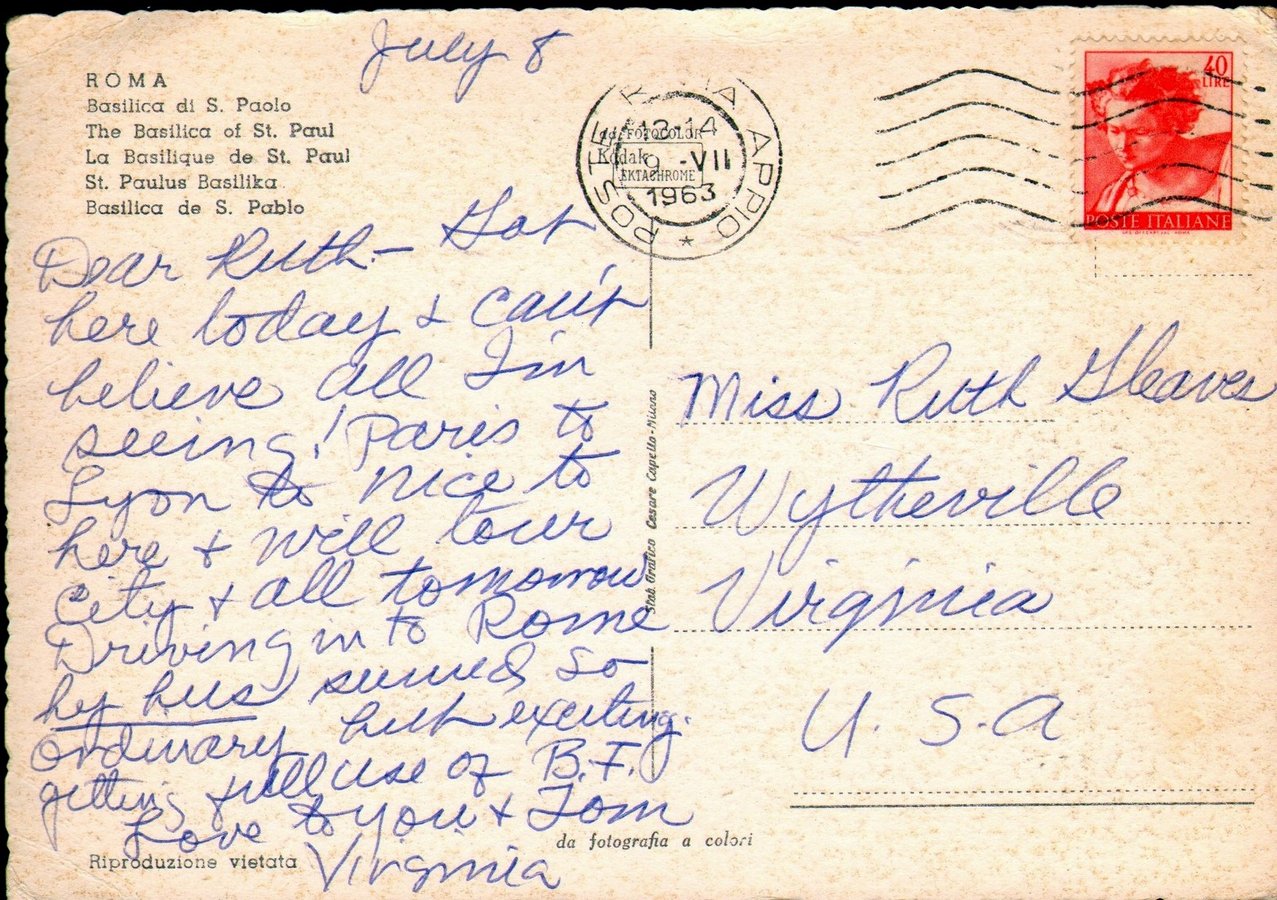 July 8
ROMA
Basilica di S. Paolo
The Basilica of St. Paul
La Basilique de St. Paul
St. Paulus Basilika
Basilica de S. Pablo
POSTE ROMA APPIO
12-14
9 -VII
1963
FOTOCOLOR
Kodak
EKTACHROME
40
LIRE
POSTE ITALIANE
Dear Ruth - Got
here today & can't
believe all I'm
seeing! Paris to
Lyon to Nice to
here & will tour
city & all tomorrow
Driving in to Rome
by bus seemed so
ordinary but exciting.
getting full use of B.F.
Love to you & Tom
Virginia
Stab. Grafico Cesare Capello - Milano
Miss Ruth Gleaves
Wytheville
Virginia
U. S. A
da fotografia a colori
Riproduzione vietata